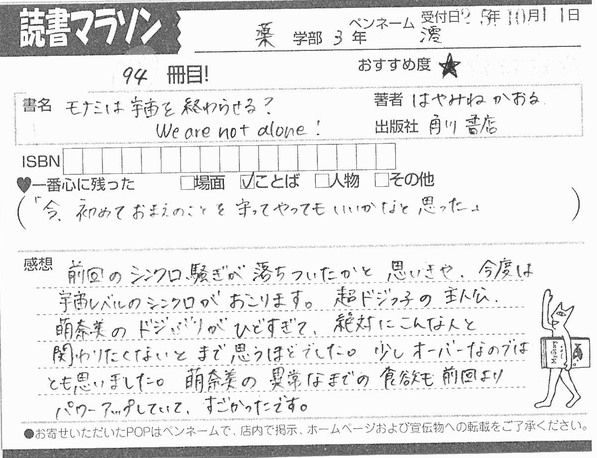 読書マラソン
薬 学部 3 年 ペンネーム 澪 受付日 25年10月11日
94 冊目!
おすすめ度 ★
書名 モナミは宇宙を終わらせる?
We are not alone!
著者 はやみねかおる
出版社 角川書店
ISBN
♥一番心に残った □場面 ☑ことば □人物 □その他
(「今、初めておまえのことを守ってやってもいいかなと思った」)
感想 前回のシンクロ騒ぎが落ちついたかと思いきや、今度は
宇宙レベルのシンクロがおこります。超ドジっ子の主人公、
萌奈美のドジっぷりがひどすぎて、絶対にこんな人と
関わりたくないとまで思うほどでした。少しオーバーなのでは
とも思いました。萌奈美の異常なまでの食欲も前回より
パワーアップしていて、すごかったです。
●お寄せいただいたPOPはペンネームで、店内で掲示、ホームページおよび宣伝物への転載をご了承ください。